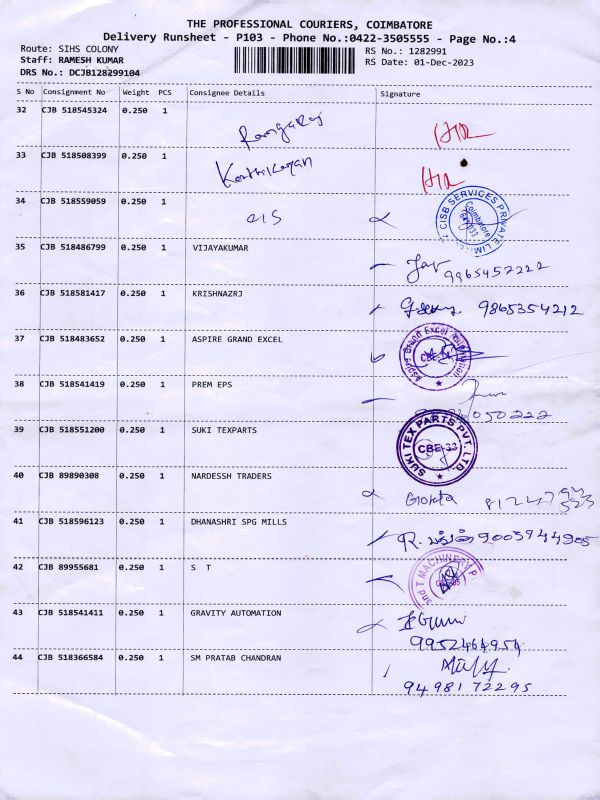 THE PROFESSIONAL COURIERS, COIMBATORE
Delivery Runsheet - P103 - Phone No.:0422-3505555 - Page No.:4
Route: SIHS COLONY RS No.: 1282991
Staff: RAMESH KUMAR RS Date: 01-Dec-2023
DRS No.: DCJB128299104
S No Consignment No Weight PCS Consignee Details Signature
32 CJB 518545324 0.250 1 Rangaraj
33 CJB 518508399 0.250 1 Karthikeyan
34 CJB 518559059 0.250 1 CIS CISB SERVICES PRIVATE LIM Coimbatore
35 CJB 518486799 0.250 1 VIJAYAKUMAR 9965457222
36 CJB 518581417 0.250 1 KRISHNAZRJ 9865354212
37 CJB 518483652 0.250 1 ASPIRE GRAND EXCEL Aspire Grand Excel
38 CJB 518541419 0.250 1 PREM EPS 050222
39 CJB 518551200 0.250 1 SUKI TEXPARTS SUKI TEX PARTS PVT. LTD. CBE-33
40 CJB 89890308 0.250 1 NARDESSH TRADERS
41 CJB 518596123 0.250 1 DHANASHRI SPG MILLS 9003944905
42 CJB 89955681 0.250 1 S T and T MACHINERY P
43 CJB 518541411 0.250 1 GRAVITY AUTOMATION
9952464954
44 CJB 518366584 0.250 1 SM PRATAB CHANDRAN
9498172295